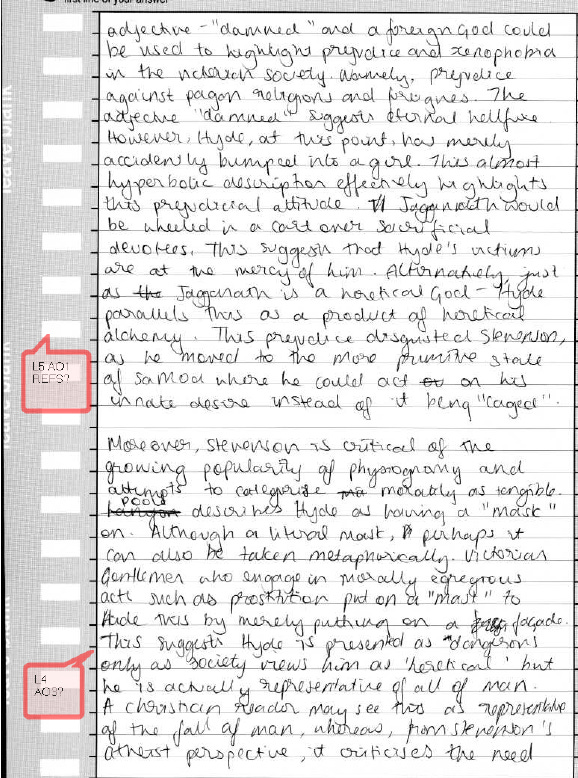 first line of your answer
adjective - "damned" and a foreign God could
be used to highlight prejudice and xenophobia
in the victorian society. Namely, prejudice
against pagan religions and
adjective "damned" suggests eternal hellfire
However, Hyde, at this point, has merely
accidently bumped into a girl. This almost
hyperbolic description effectively highlights
this prejudicial attitude. Jagganath would
be wheeled in a cart over sacrificial
devotees. This suggests that Hyde's victims
are at the mercy of him. Alternately, just
as the Jagganath is a heretical God - Hyde
parallels this as a product of heretical
alchemy. This prejudice disgusted Stevenson,
as he moved to the more primitive state
of Samoa where he could act on his
innate desire instead of it being "caged".
Moreover, Stevenson is critical of the
growing popularity of physiognomy and
attempts to categorise morality as tangible.
Poole
describes Hyde as having a "mask"
on. Although a literal mask, perhaps it
can also be taken metaphorically. Victorian
Gentlemen who engage in morally egregious
acts such as prostitution put on a "mask" to
hide this by merely putting on a façade.
This suggests Hyde is presented as 'dangerous'
only as society views him as 'heretical' but
he is actually representative of all of man.
A christian reader may see this as representative
of the fall of man, whereas, from stevenson's
atheist perspective, it criticises the need
L5 AO1
REFS?
L4
AO3?
leave blank
blank
leave